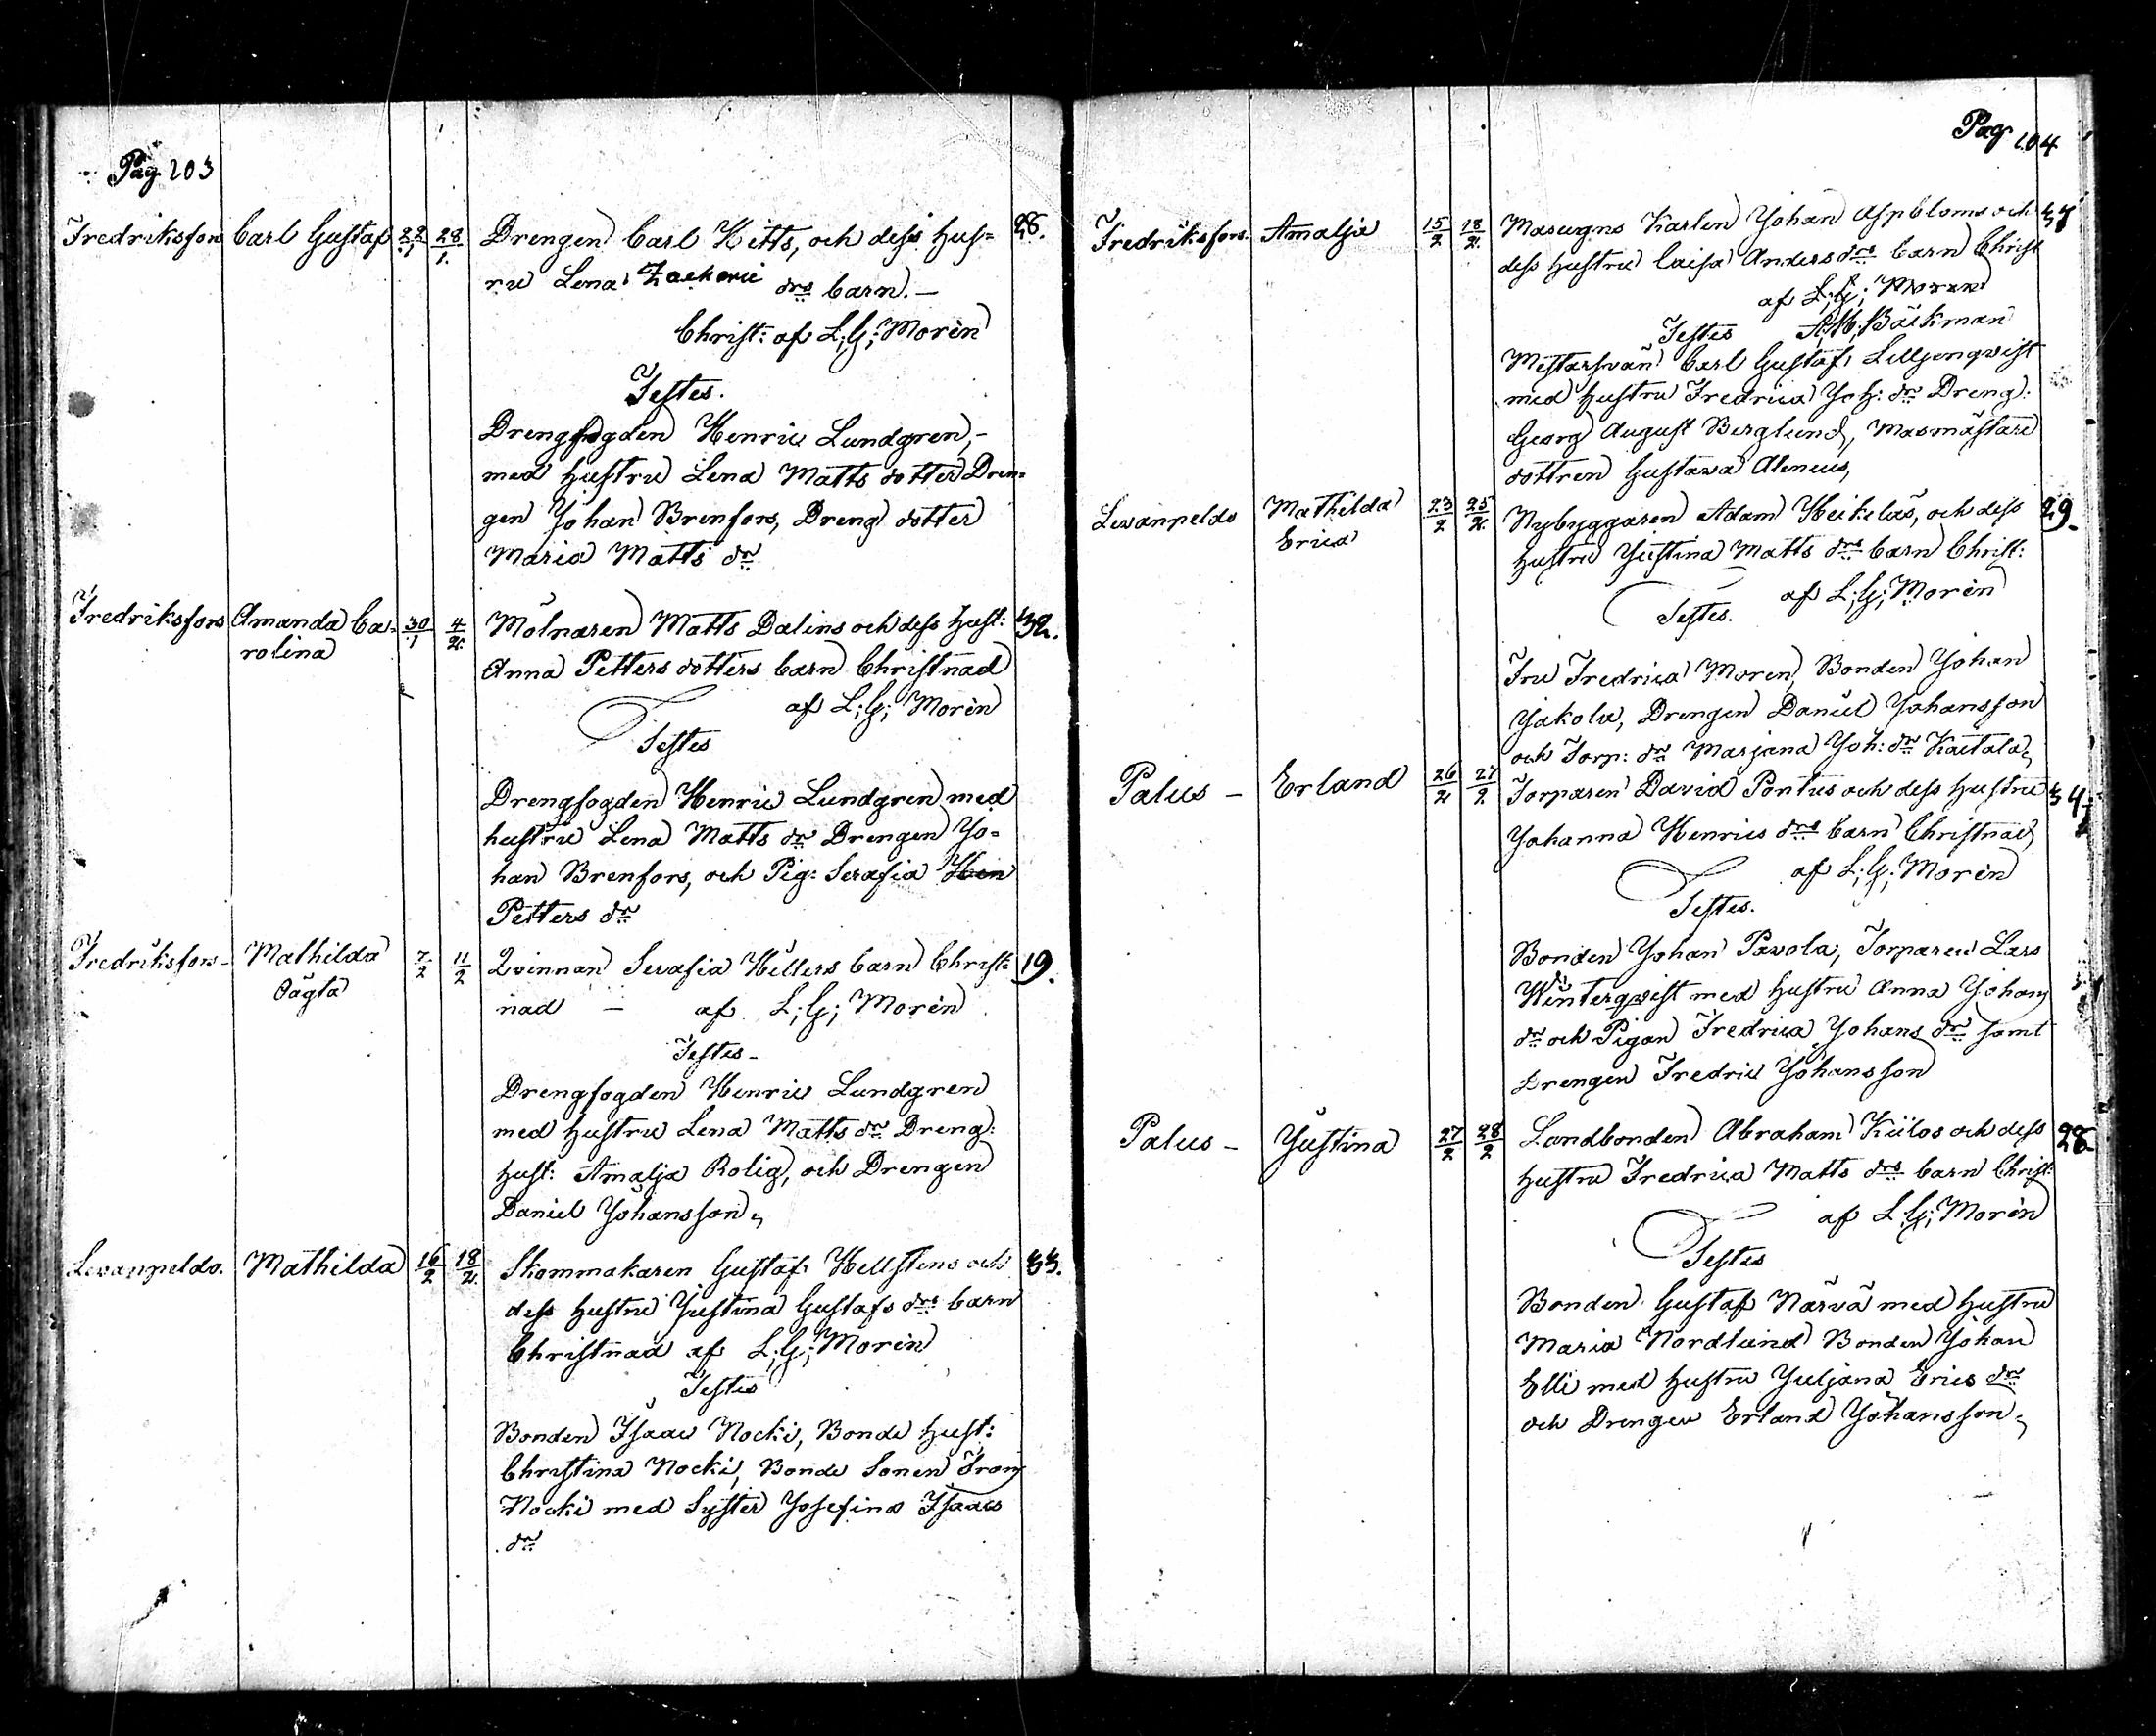 Pag. 203
Fredriksfors Carl Gustaf 22/1 28/1. Drengen Carl Kitts, och dess Hus= 28.
ru Lena Zacharie drs barn.—
Christ: af L;G; Morén
Testes.
Drengfogden Henric Lundgren,-
med Hustru Lena Matts dotter Dren=
gen Johan Brenfors, Dreng dotter
Maria Matts dr
Fredriksfors Amanda Ca= 30/1 4/2. Mölnaren Matts Dalins och dess Hust: 32.
rolina Anna Petters dotters barn Christnad
af L;G; Morén
Testes
Drengfogden Henric Lundgren med
hustru Lena Matts dr Drengen Jo=
han Brenfors, och Pig: Serafia Hen
Petters dr
Fredriksfors- Mathilda 7/2 11/2 Qvinnan Serafia Hellers barn Christ= 19.
Oägta nad — af L;G; Morén
Testes-
Drengfogden Henric Lundgren
med Hustru Lena Matts dr Dreng:
Hust: Amalja Rolig, och Drengen
Daniel Johansson,
Levanpeldo. Mathilda 16/2 18/2. Skommakaren Gustaf Hellstens och 33.
dess Hustru Justina Gustafs drs barn
Christnad af L;G; Morén
Testes
Bonden Isaac Nocki, Bonde Hust:
Christina Nocki, Bonde Sonen Frans
Nocki med Syster Josefina Isaacs
dr
Pag 104
Fredriksfors. Amalja 15/2 18/2. Masugns Karlen Johan Aspbloms och 37
dess Hustru Caisa Anders drs barn Christ
af L;G; Moren
Testes A;M; Bäckman
Mestersvän Carl Gustaf Lilljenqvist
med Hustru Fredrica Joh: dr Dreng:
Georg August Berglund, Masmästare
dottren Gustava Aleneus,
Levanpeldo Mathilda 23/2 25/2. Nybyggaren Adam Heikelas, och dess 29.
Erica Hustru Justina Matts drs barn Christ:
af L;G; Morén
Testes.
Fru Fredrica Moren, Bonden Johan
Jakola, Drengen Daniel Johansson
och Torp: dr Marjana Joh: dr Kaitala,
Palus – Erland 26/2 27/2. Torparen David Pontus och dess Hustru 34
Johanna Henrics drs barn Christnad
af L;G; Morén
Testes.
Bonden Johan Pavola, Torparen Lars
Winterqvist med Hustru Anna Johans
dr och Pigan Fredrica Johans dr samt
Drengen Fredric Johansson
Palus – Justina 27/2 28/2 Landbonden Abraham Kiilos och dess 28.
Hustru Fredrica Matts drs barn Christ:
af L;G; Morén
Testes
Bonden Gustaf Närvä med Hustru
Maria Nordlund Bonden Johan
Elli med Hustru Juljana Erics dr
och Drengen Erland Johansson,